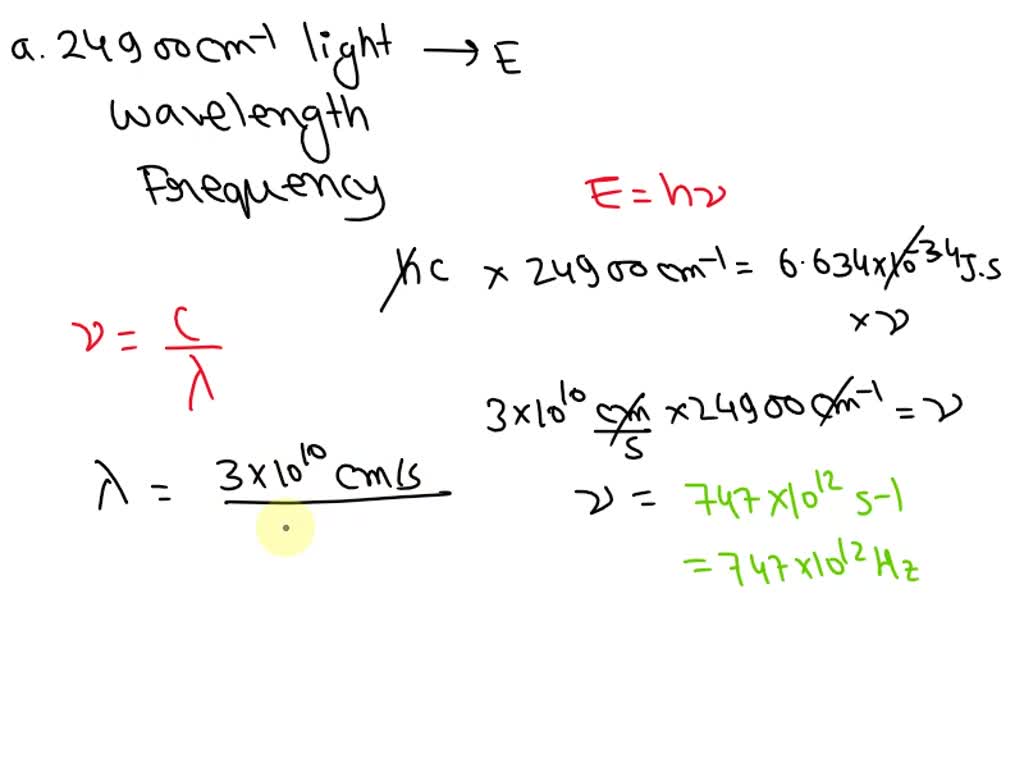 a. 24900cm⁻¹ light → E
wavelength
Frequency
E = hν
hc × 24900cm⁻¹ = 6.634×10⁻³⁴J.s
×ν
ν = c/λ
3×10¹⁰ cm/s ×24900 cm⁻¹ = ν
λ = 3×10¹⁰ cm/s
ν = 747×10¹² s-1
= 747×10¹² Hz